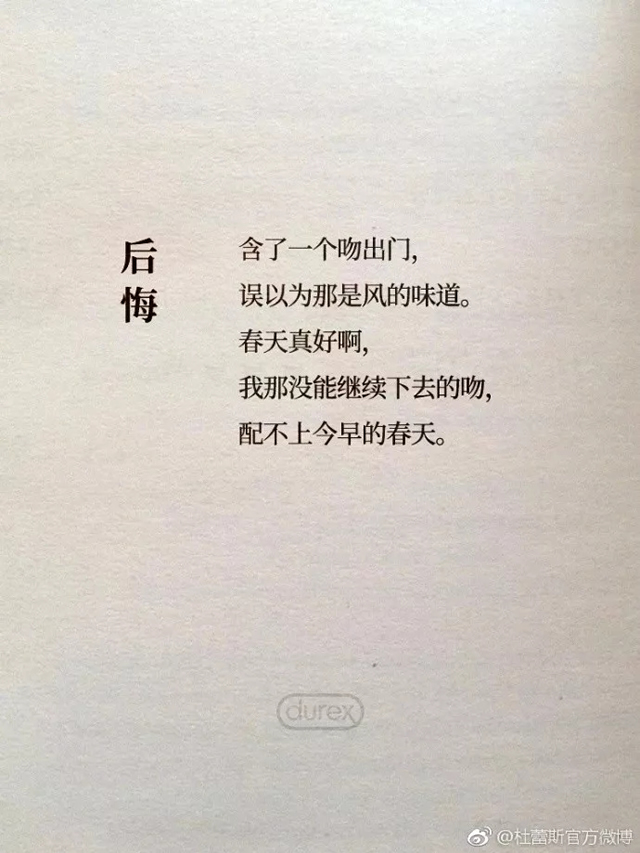 后悔
含了一个吻出门，
误以为那是风的味道。
春天真好啊，
我那没能继续下去的吻，
配不上今早的春天。
durex
@杜蕾斯官方微博